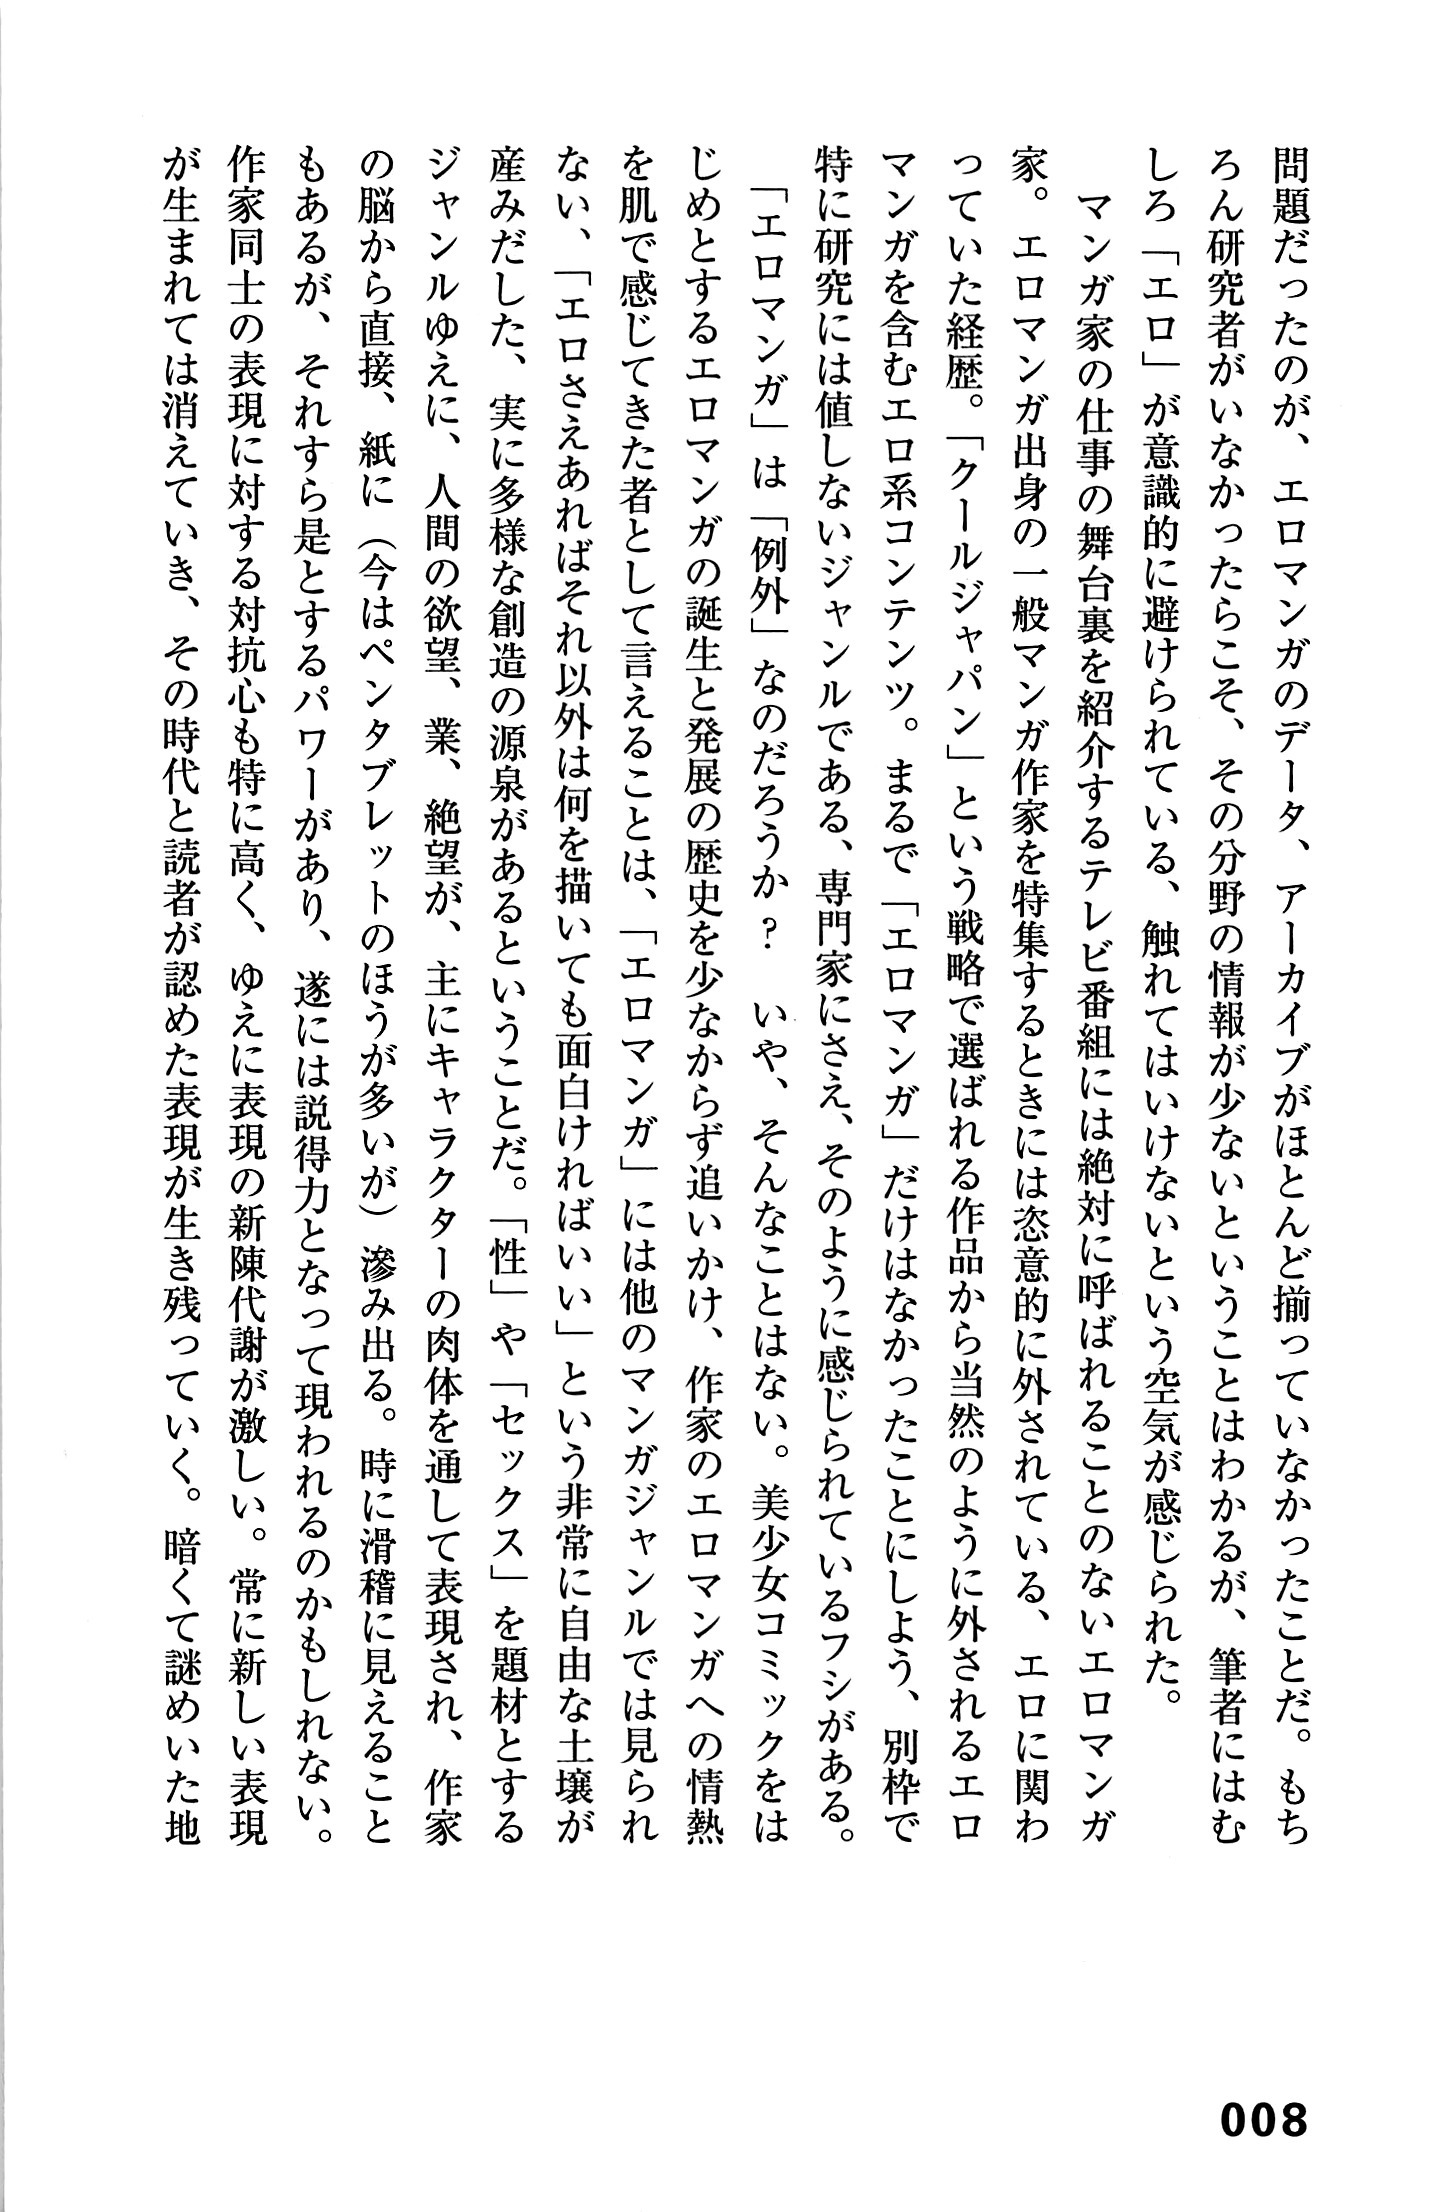 問題だったのが、エロマンガのデータ、アーカイブがほとんど揃っていなかったことだ。もち
ろん研究者がいなかったらこそ、その分野の情報が少ないということはわかるが、筆者にはむ
しろ「エロ」が意識的に避けられている、触れてはいけないという空気が感じられた。
マンガ家の仕事の舞台裏を紹介するテレビ番組には絶対に呼ばれることのないエロマンガ
家。エロマンガ出身の一般マンガ作家を特集するときには恣意的に外されている、エロに関わ
っていた経歴。「クールジャパン」という戦略で選ばれる作品から当然のように外されるエロ
マンガを含むエロ系コンテンツ。まるで「エロマンガ」だけはなかったことにしよう、別枠で
特に研究には値しないジャンルである、専門家にさえ、そのように感じられているフシがある。
「エロマンガ」は「例外」なのだろうか? いや、そんなことはない。美少女コミックをは
じめとするエロマンガの誕生と発展の歴史を少なからず追いかけ、作家のエロマンガへの情熱
を肌で感じてきた者として言えることは、「エロマンガ」には他のマンガジャンルでは見られ
ない、「エロさえあればそれ以外は何を描いても面白ければいい」という非常に自由な土壌が
産みだした、実に多様な創造の源泉があるということだ。「性」や「セックス」を題材とする
ジャンルゆえに、人間の欲望、業、絶望が、主にキャラクターの肉体を通して表現され、作家
の脳から直接、紙に（今はペンタブレットのほうが多いが）滲み出る。時に滑稽に見えること
もあるが、それすら是とするパワーがあり、遂には説得力となって現われるのかもしれない。
作家同士の表現に対する対抗心も特に高く、ゆえに表現の新陳代謝が激しい。常に新しい表現
が生まれては消えていき、その時代と読者が認めた表現が生き残っていく。暗くて謎めいた地
008